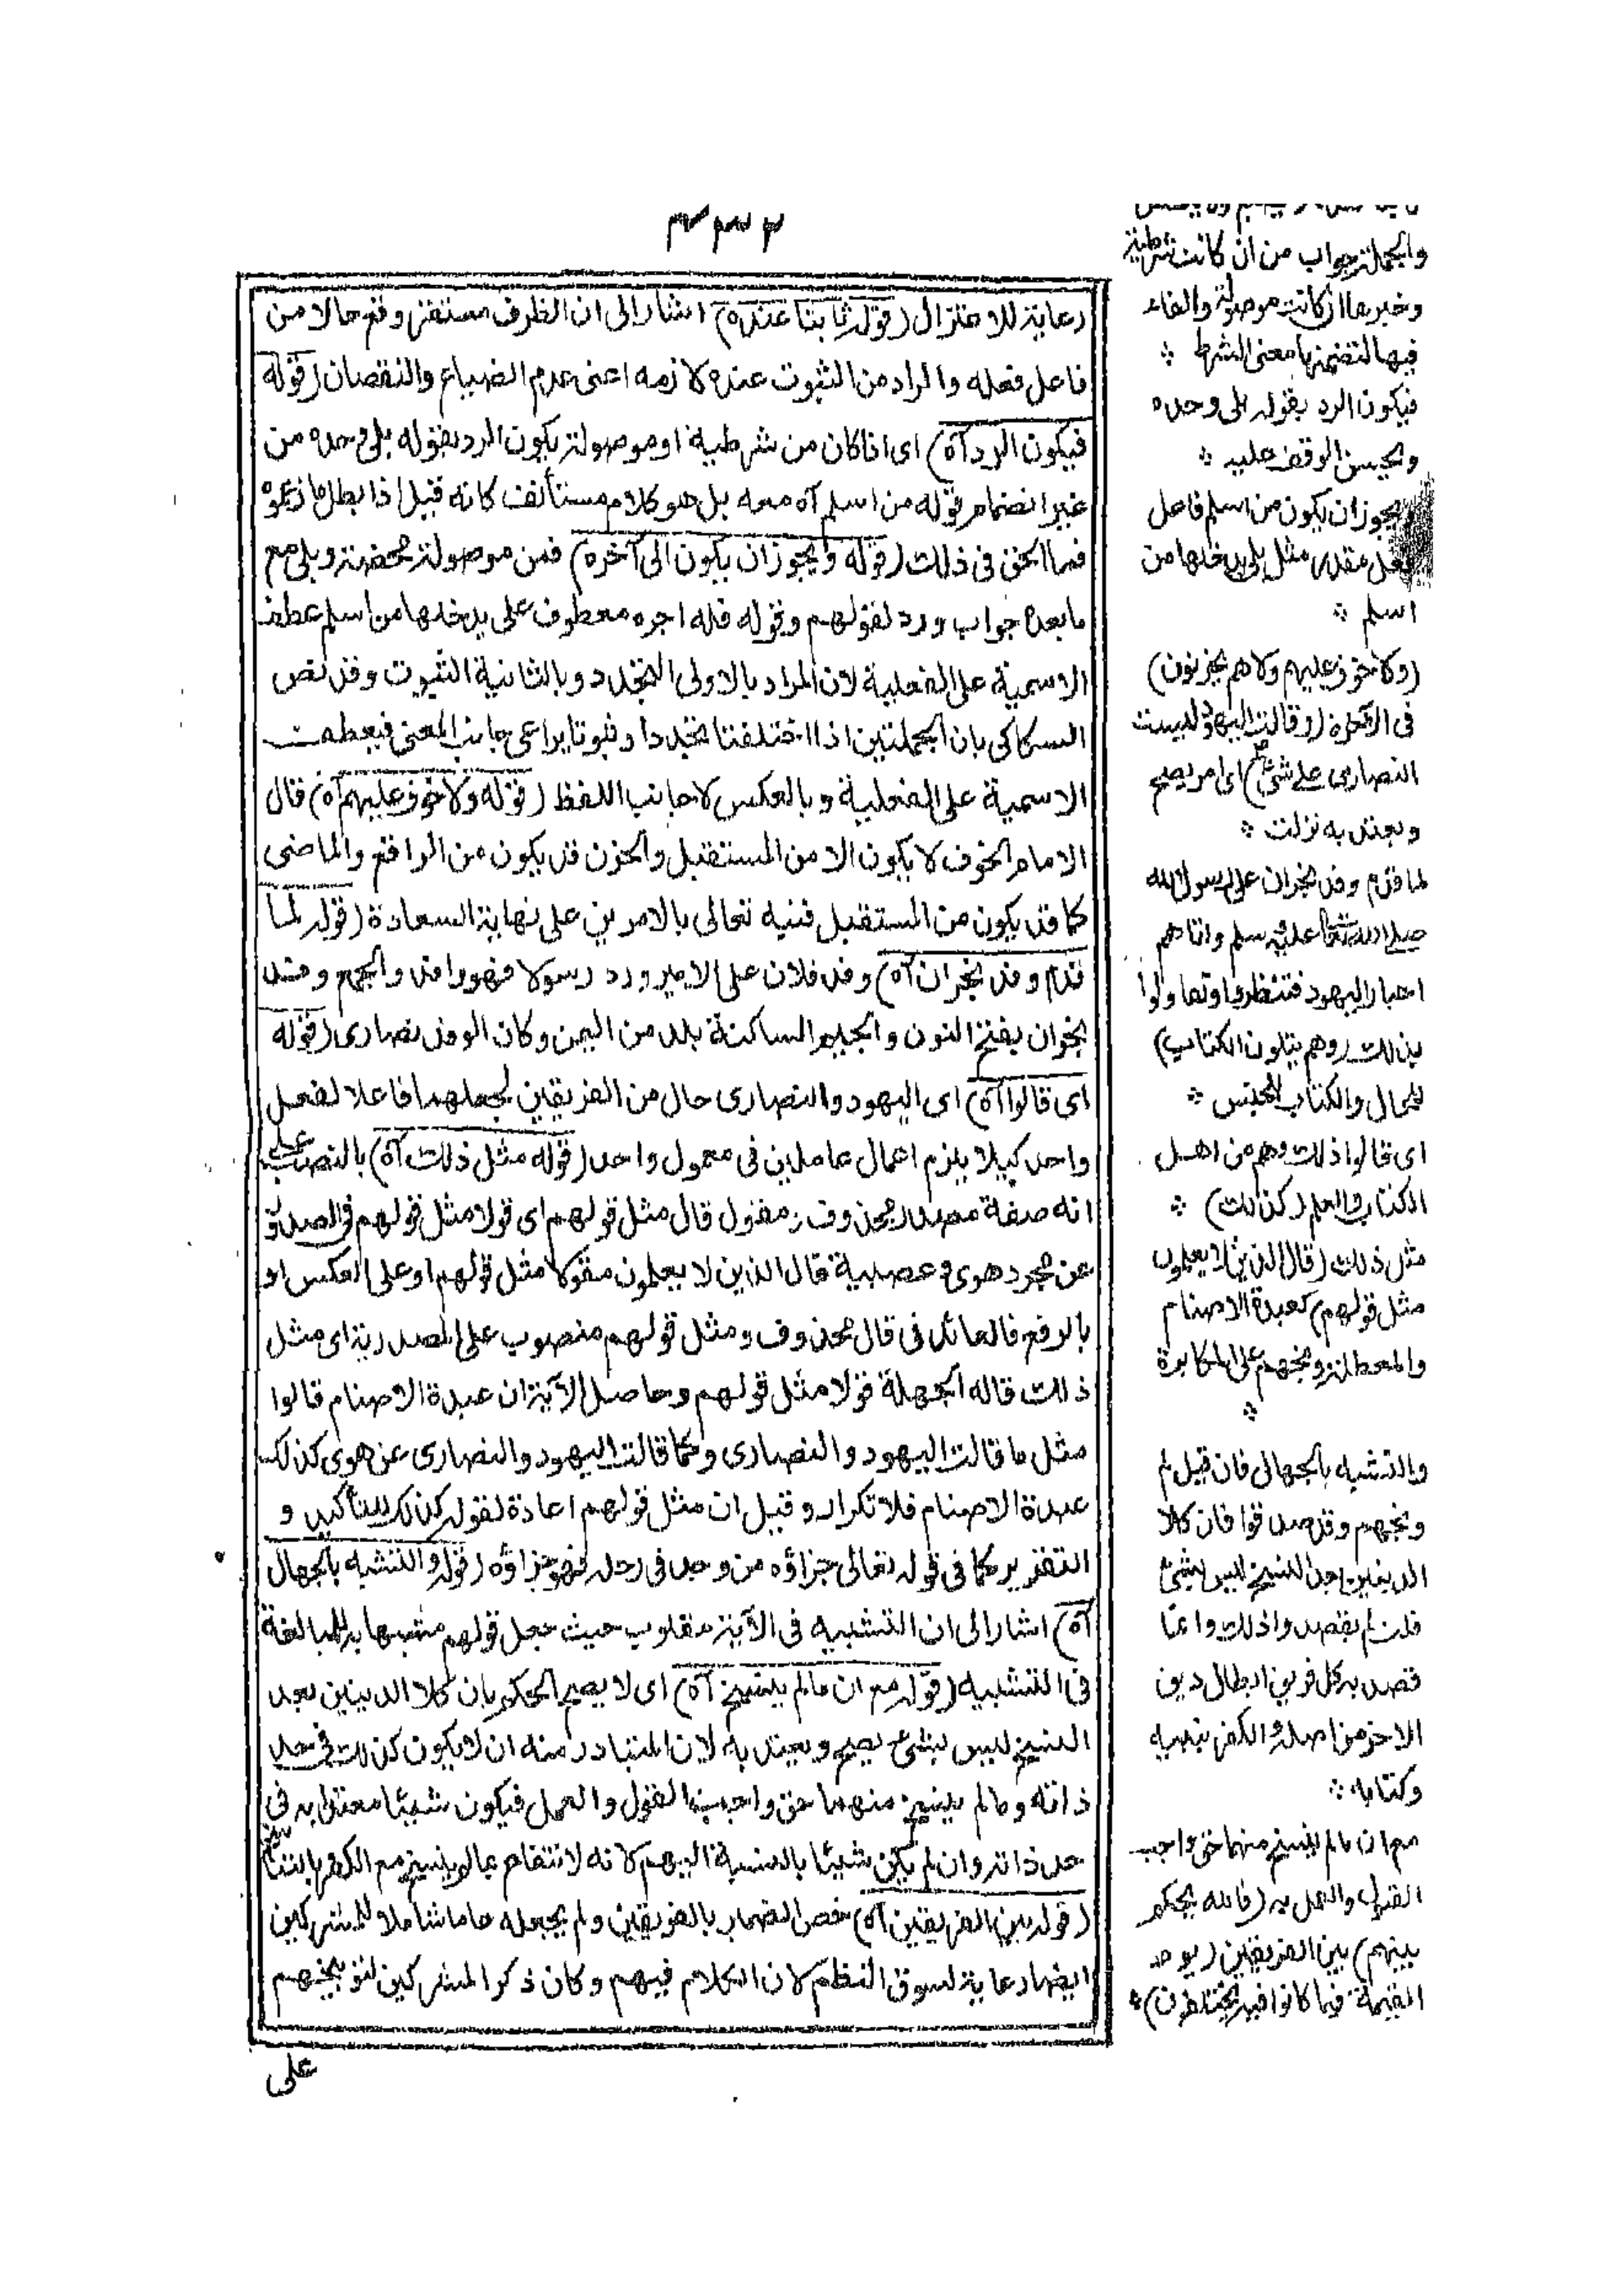 ۴۳۲
رعاية للاعتزال (قوله ثابتا عنده) اشار الى ان الظرف مستقر وقع حالا من
فاعل فعله والمراد من الثبوت عنده لازمه اعنى عدم الضياع والنقصان (قوله
فيكون الرد آه) اى اذا كان من شرطية او موصولة يكون الرد بقوله بلى وحده من
غير انضمام قوله من اسلم آه معه بل هو كلام مستأنف كانه قيل اذا بطل ما زعموه
فما الحق فى ذلك (قوله ويجوز ان يكون الى آخره) فمن موصولة محضة وبلى مع
ما بعده جواب ورد لقولهم وقوله فله اجره معطوف على يدخلها من اسلم عطف
الاسمية على الفعلية لان المراد بالاولى التجدد وبالثانية الثبوت وقد نص
السكاكى بان الجملتين اذا اختلفتا تجددا وثبوتا يراعى جانب المعنى فيعطف
الاسمية على الفعلية وبالعكس لا جانب اللفظ (قوله ولا خوف عليهم آه) قال
الامام الخوف لا يكون الا من المستقبل والحزن قد يكون من الواقع والماضى
كما قد يكون من المستقبل فنبه تعالى بالامرين على نهاية السعادة (قوله لما
قدم وفد نجران آه) وفد فلان على الامير ورد رسولا فهو وافد والجمع وفد
نجران بفتح النون والجيم الساكنة بلد من اليمن وكان الوفد نصارى (قوله
اى قالوا آه) اى اليهود والنصارى حال من الفريقين لجعلهما فاعلا لفعل
واحد كيلا يلزم اعمال عاملين فى معمول واحد (قوله مثل ذلك آه) بالنصب على
انه صفة مصدر محذوف ومفعول قال مثل قولهم اى قولا مثل قولهم فى الصدور
عن مجرد هوى وعصبية قال الذين لا يعلمون مقولا مثل قولهم او على العكس او
بالرفع فالعائد فى قال محذوف ومثل قولهم منصوب على المصدرية اى مثل
ذلك قاله الجهلة قولا مثل قولهم وحاصل الآية ان عبدة الاصنام قالوا
مثل ما قالت اليهود والنصارى وكما قالت اليهود والنصارى عن هوى كذلك
عبدة الاصنام فلا تكرار وقيل ان مثل قولهم اعادة لقوله كذلك للتأكيد و
التقرير كما فى قوله تعالى جزاؤه من وجد فى رحله فهو جزاؤه (قوله والتشبه بالجهال
آه) اشار الى ان التشبيه فى الآية مقلوب حيث جعل قولهم مشبها به للمبالغة
فى التشبيه (قوله مع ان ما لم ينسخ آه) اى لا يصح الحكم بان كلا الدينين بعد
النسخ ليس بشئ يصح ويعتد به لان المتبادر منه ان لا يكون كذلك فى حد
ذاته وما لم ينسخ منهما حق واجب القبول والعمل فيكون شيئا معتدا به فى
حد ذاته وان لم يكن شيئا بالنسبة اليهم لانه لا انتفاع بما لم ينسخ مع الكفر بالناسخ
(قوله بين الفريقين آه) خص الضمير بالفريقين ولم يجعله عاما شاملا للمشركين
ايضا رعاية لسوق النظم لان الكلام فيهم وكان ذكر المشركين لتوبيخهم
على
والجملة جواب من ان كانت شرطية
وخبرها ان كانت موصولة والفاء
فيها لتضمنها معنى الشرط ؞
فيكون الرد بقوله بلى وحده
ويحسن الوقف عليه ؞
ويجوز ان يكون من اسلم فاعل
فعل مقدر مثل بلى يدخلها من
اسلم ؞
(ولا خوف عليهم ولا هم يحزنون)
فى الآخرة (وقالت اليهود ليست
النصارى على شئ) اى امر يصح
ويعتد به نزلت ؞
لما قدم وفد نجران على رسول الله
صلى الله تعالى عليه وسلم واتاهم
احبار اليهود فتناظروا وتقاولوا
بذلك (وهم يتلون الكتاب)
للحال والكتاب للجنس ؞
اى قالوا ذلك وهم من اهل
الكتاب والعلم (كذلك) ؞
مثل ذلك (قال الذين لا يعلمون
مثل قولهم) كعبدة الاصنام
والمعطلة وبخهم على المكابرة
؞
والتشبه بالجهال فان قيل لم
وبخهم وقد صدقوا فان كلا
الدينين بعد النسخ ليس بشئ
قلت لم يقصدوا ذلك وانما
قصد به كل فريق ابطال دين
الاخر من اصله والكفر بنبيه
وكتابه ؞
مع ان ما لم ينسخ منهما حق واجب
القبول والعمل به (فالله يحكم
بينهم) بين الفريقين (يوم
القيمة فيما كانوا فيه يختلفون) ؞